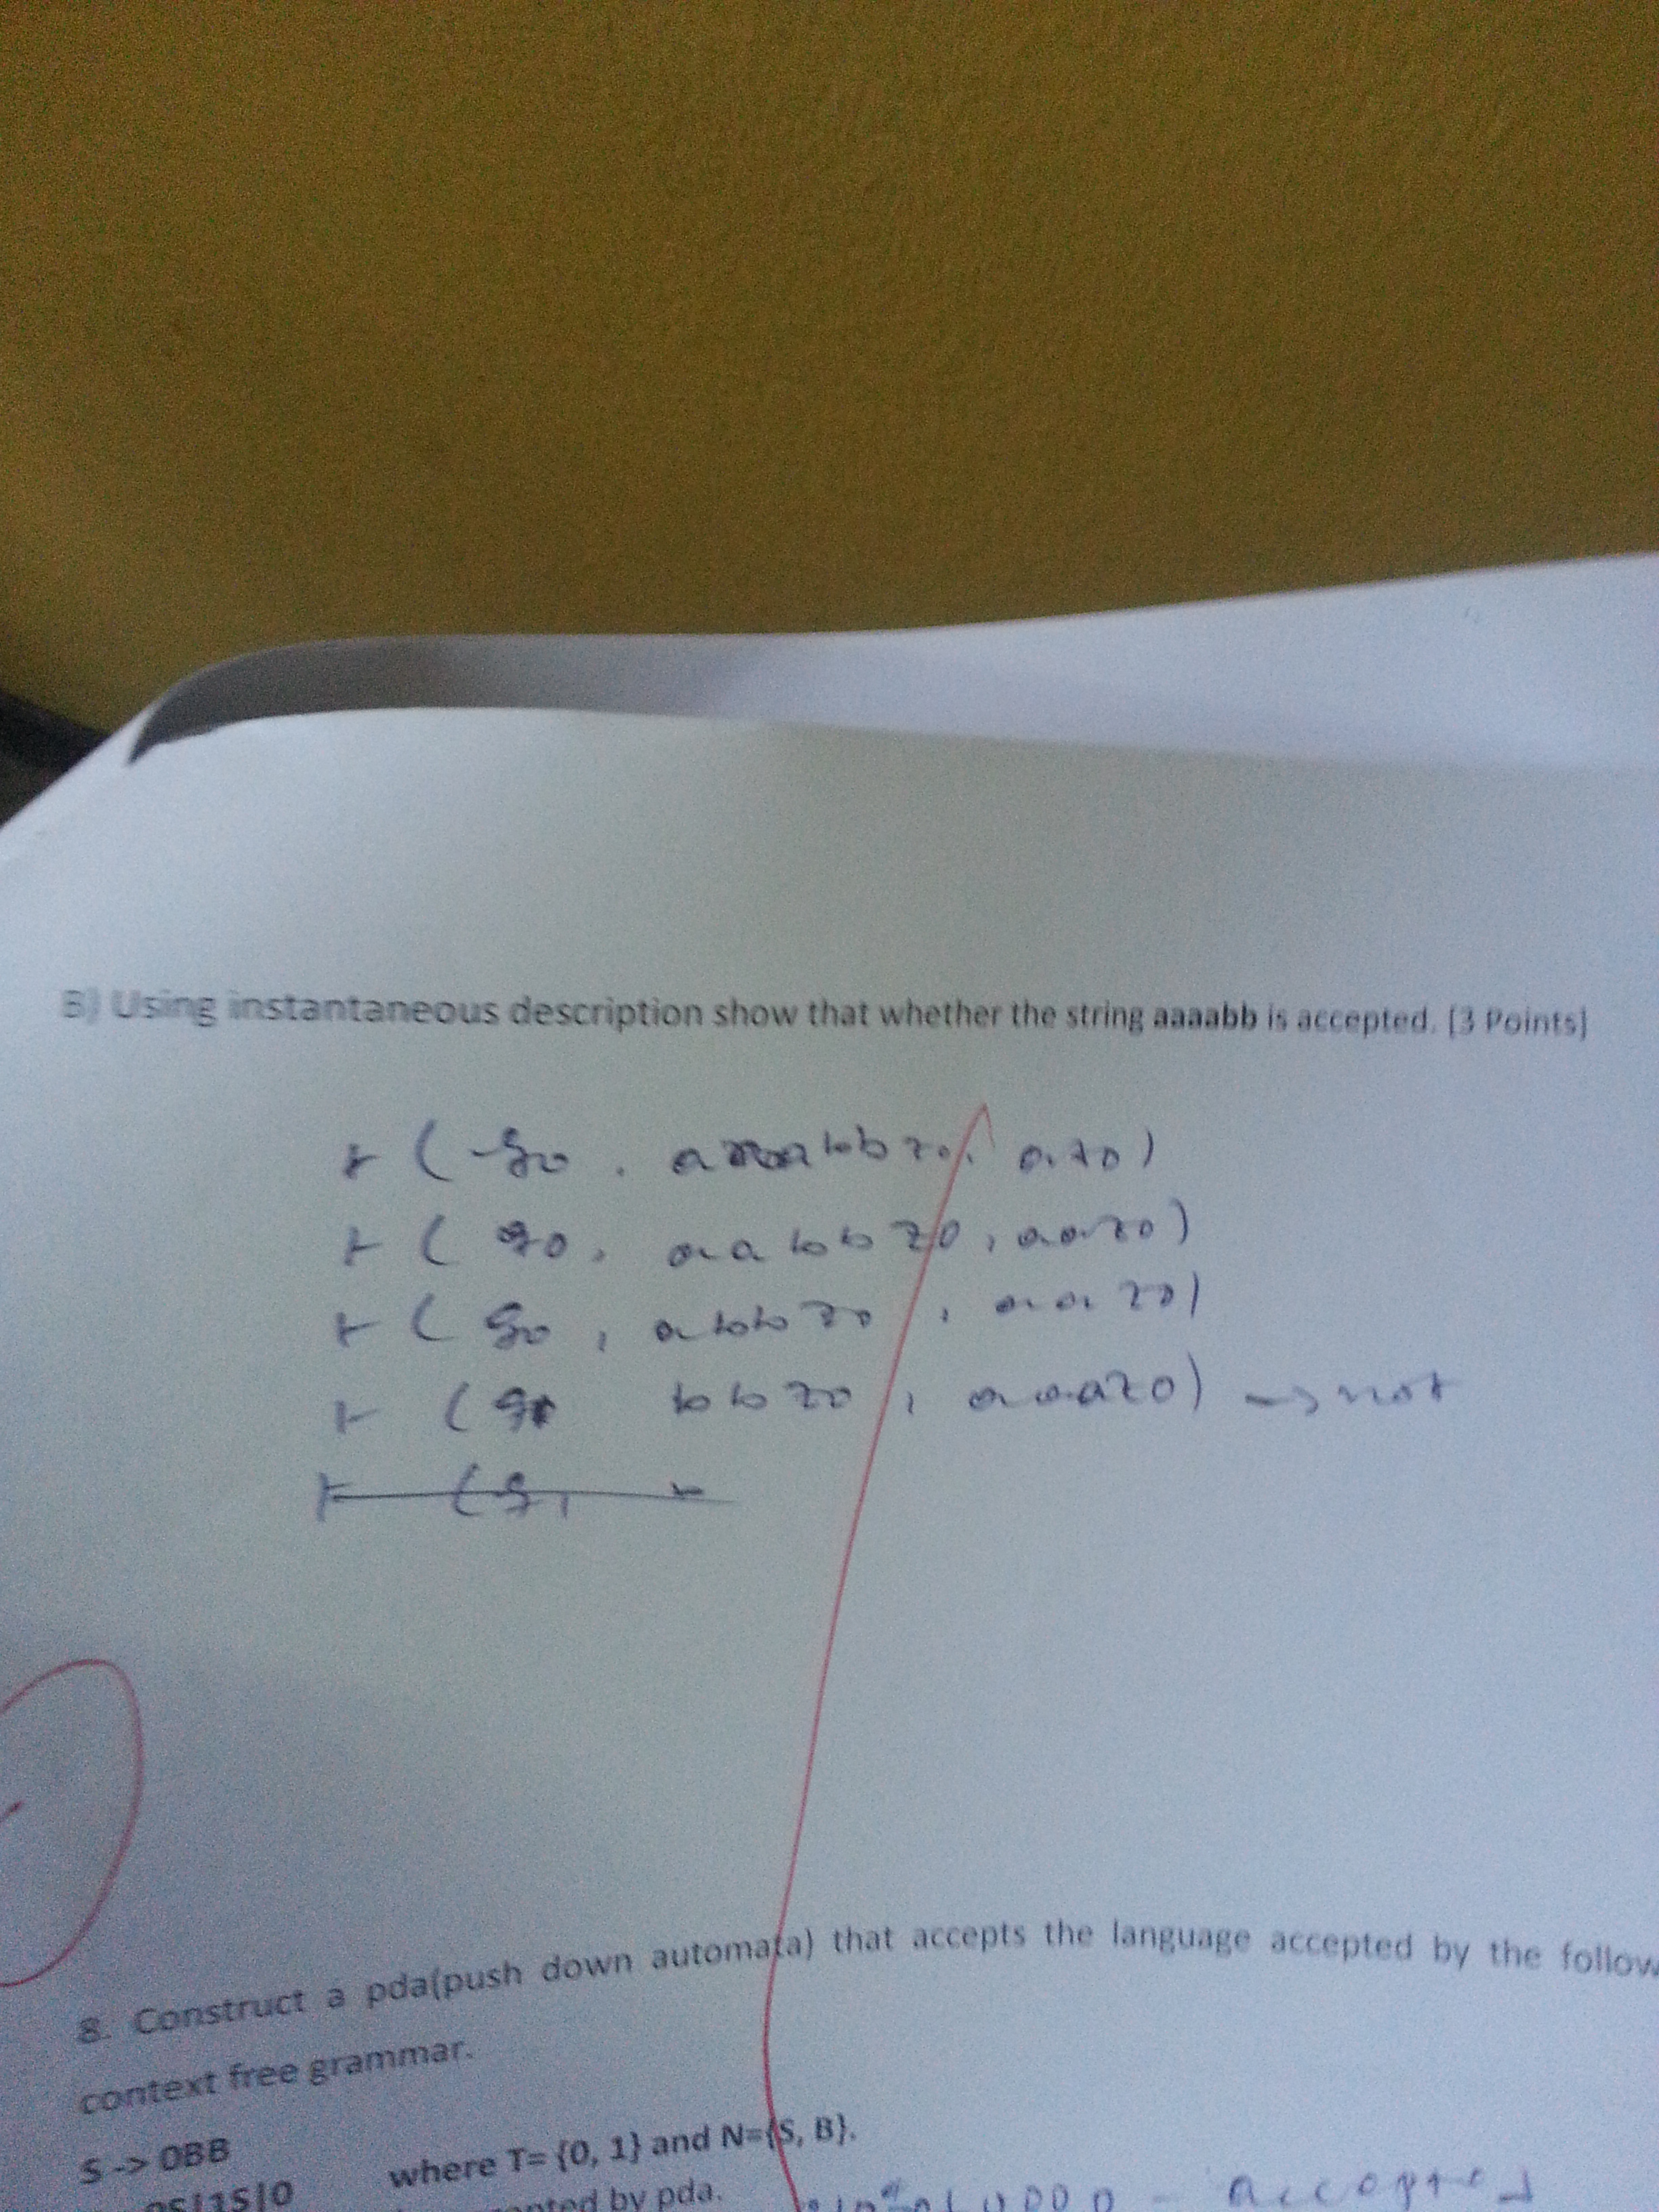 B) Using instantaneous description show that whether the string aaaabb is accepted. [3 Points]
⊢ ( q0 , aaaabbz0, az0)
⊢ ( q0, aabbz0, aaz0)
⊢ ( q0, abbz0, aaz0)
⊢ (q1 bbz0, aaaz0) → not
⊢ (q1
8. Construct a pda(push down automata) that accepts the language accepted by the follow
context free grammar.
S -> 0BB
where T= {0, 1} and N={S, B}.
0S|1S|0
by pda.
accepted